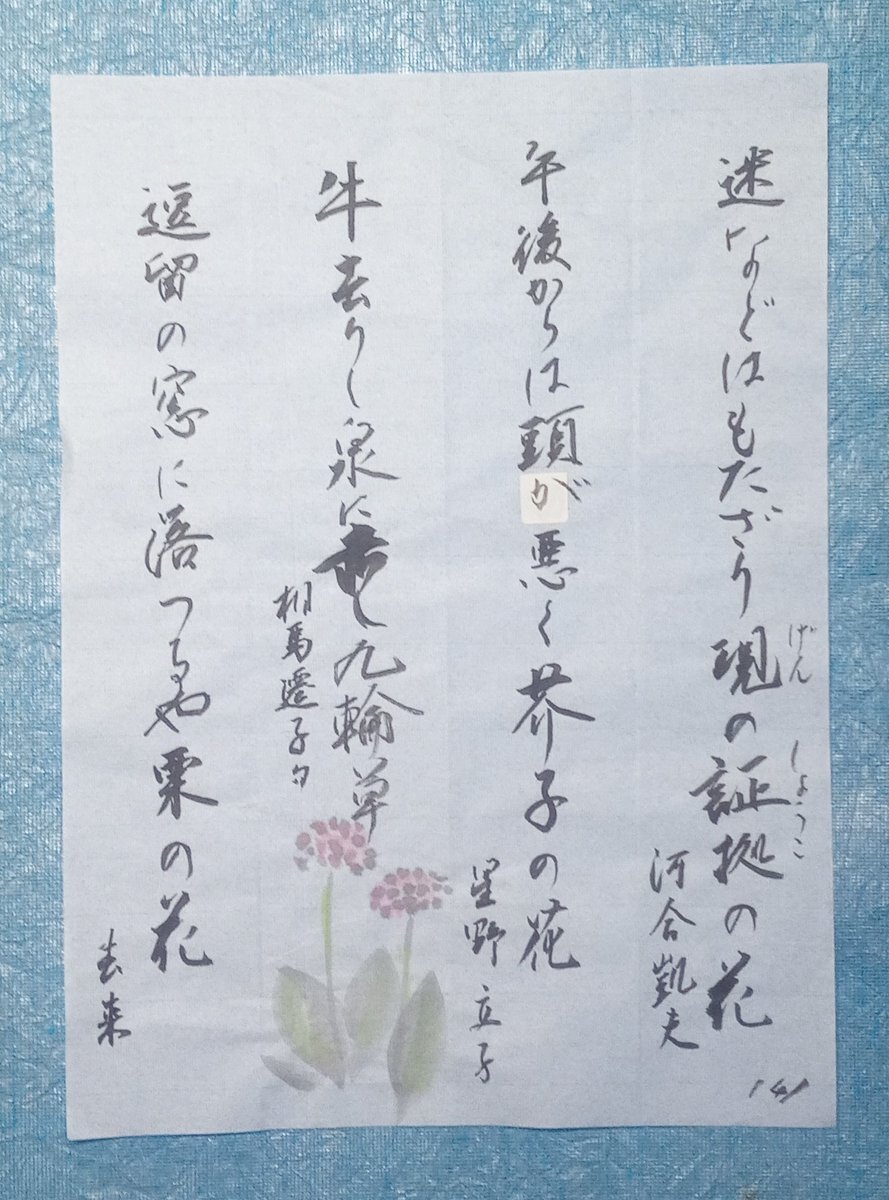 迷などはもたざり現の証拠の花
げん
しょうこ
河合凱夫
午後からは頭が悪く芥子の花
星野立子
牛去りし泉に垂し九輪草
相馬遷子句
逗留の窓に落つるや栗の花
去来
141